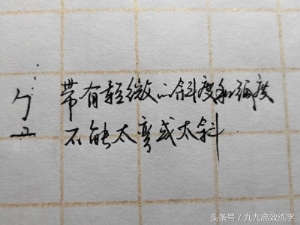 带有轻微的斜度和弧度
不能太弯或太斜
头条号／九九高效练字